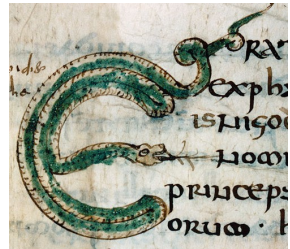 ERAT
expha
isnigod
nomi
princeps
orum · h